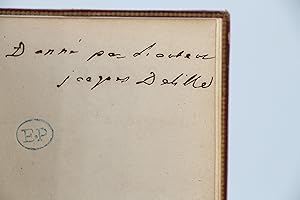 Donné par l'auteur
jacques Delille
E·P